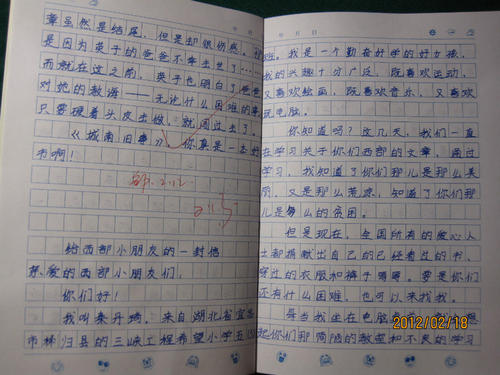 章虽然是结尾，但是却很伤感。
是因为英子的爸爸不幸去世了……
而就在这之前，英子也明白了爸爸
对她的教海——无论什么困难的事，
只要硬着头皮去做，就闯过去了。
《城南旧事》，你真是一本好
书啊！
给西部小朋友的一封信
亲爱的西部小朋友们，
你们好！
我叫秦丹琦，来自湖北省宜昌
市秭归县的三峡工程希望小学五
班。我是一个勤奋好学的好女孩，
我的兴趣十分广泛，既喜欢运动，
又喜欢绘画，既喜欢音乐，又喜欢
玩电脑。
你知道吗？这几天，我们一直
在学习关于你们西部的文章，通过
学习，我知道了你们那儿是那么美
丽，又是那么荒凉，知道了你们那
儿是多么的贫困。
但是现在，全国所有的爱心人
士都捐献出自己的已经看过的书、
穿过的衣服和裤子
要是你们
还有什么困难，也可以来找我。
每当我坐在电脑
起你们那简陋的教室和不良的学习
2012/02/18